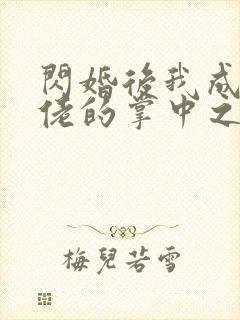 閃婚後我成
佬的掌中之
梅兒若雪